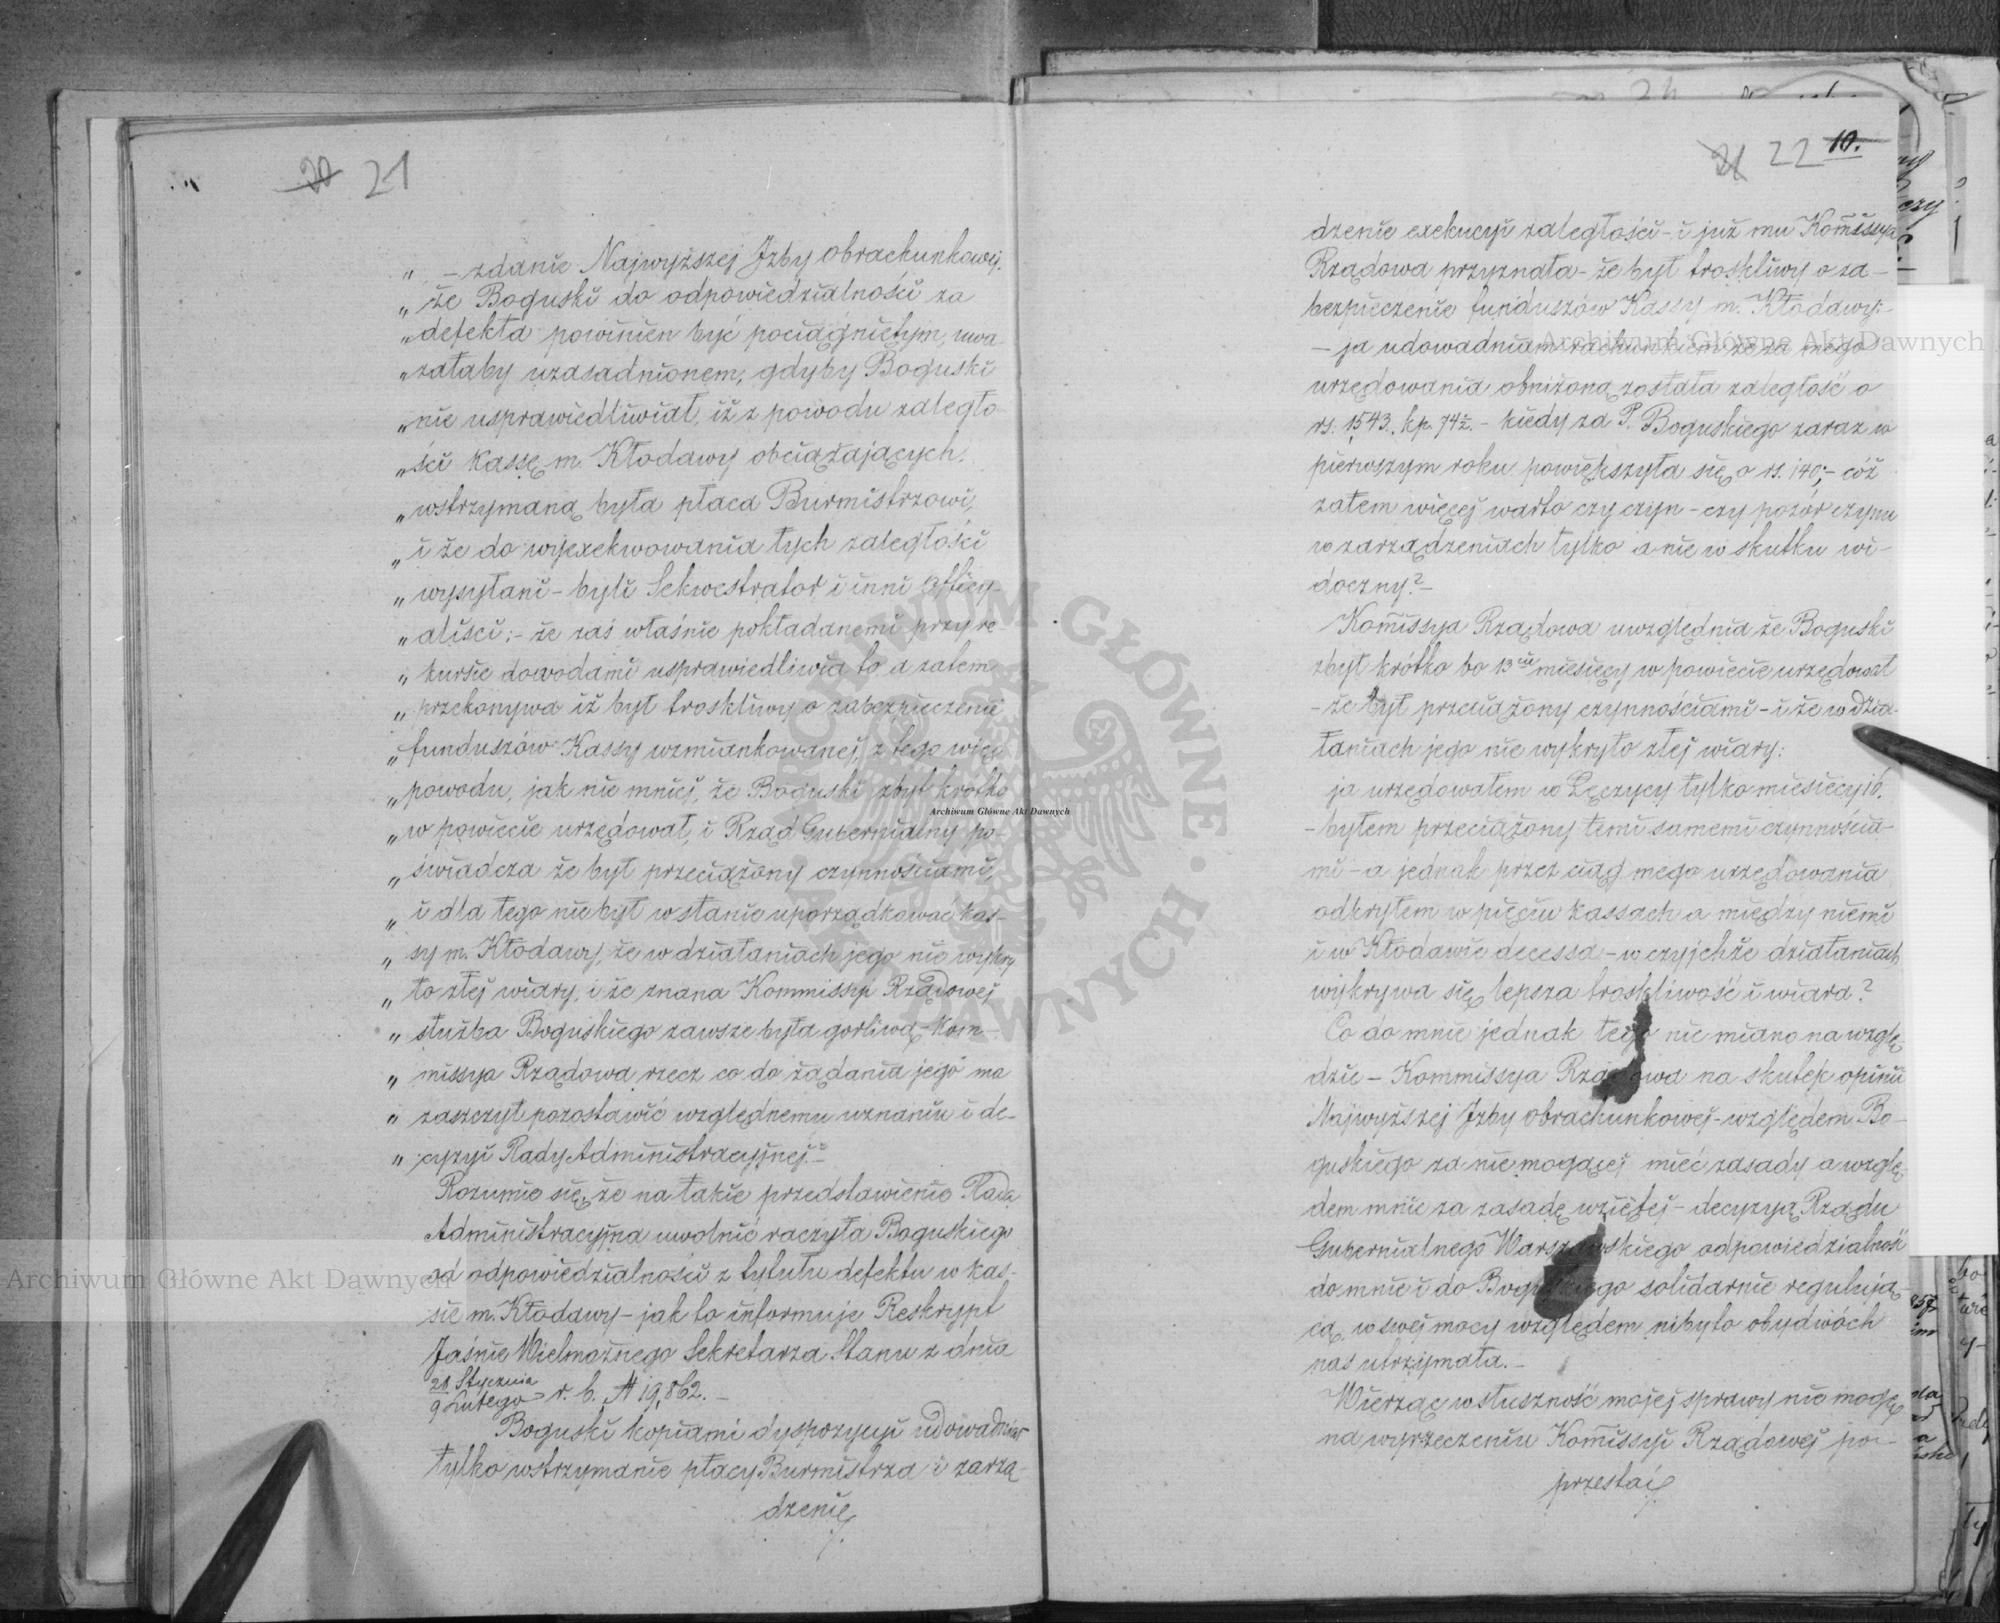 20 21
" – zdanie Najwyższej Izby obrachunkowej,
" że Boguski do odpowiedzialności za
" defekta powinien być pociągniętym, uwa
" żałaby uzasadnionem, gdyby Boguski
" nie usprawiedliwiał, iż z powodu zaległo
" ści kassę m. Kłodawy obciążających,
" wstrzymaną była płaca Burmistrzowi,
" i że do wyexekwowania tych zaległości
" wysyłani – byli Sekwestrator i inni officy-
" aliści; – że zaś właśnie pokładanemi przy re-
" kursie dowodami usprawiedliwia to a zatem
" przekonywa iż był troskliwy o zabezpieczenie
" funduszów Kassy wzmiankowanej, z tego więc
" powodu, jak nie mniej, że Boguski zbyt krótko
" w powiecie urzędował, i Rząd Gubernialny po-
" świadcza że był przeciążony czynnościami,
" i dla tego nie był w stanie uporządkować kas-
" sy m. Kłodawy, że w działaniach jego nie wykry
" to złej wiary, i że znana Kommissyi Rządowej
" służba Boguskiego zawsze była gorliwą – Kom-
" missya Rządowa rzecz co do żądania jego ma
" zaszczyt pozostawić względnemu uznaniu i de-
" cyzyi Rady Administracyjnej. –
Rozumie się, że na takie przedstawienie Rada
Administracyjna uwolnić raczyła Boguskiego
od odpowiedzialności z tytułu defektu w kas-
sie m. Kłodawy – jak to informuje Reskrypt
Jaśnie Wielmożnego Sekretarza Stanu z dnia
28 Stycznia
9 Lutego r. b. № 19,862. –
Boguski kopiami dyspozycyi udowadnia
tylko wstrzymanie płacy Burmistrza i zarzą-
dzenie
21 22 10.
dzenie exekucyi zaległości – i już mu Komissya
Rządowa przyznała – że był troskliwy o za-
bezpieczenie funduszów Kassy m. Kłodawy: –
– ja udowadniam rachunkiem że za mego
urzędowania obniżoną została zaległość o
rs. 1543. kp. 74½. – kiedy za P. Boguskiego zaraz w
pierwszym roku powiększyła się o rs. 140; – cóż
zatem więcej warto czy czyn – czy pozór czynu
w zarządzeniach tylko a nie w skutku wi-
doczny? –
Komissya Rządowa uwzględnia że Boguski
zbyt krótko bo 13 cie miesięcy w powiecie urzędował
– że był przeciążony czynnościami – i że w dzia-
łaniach jego nie wykryto złej wiary:
ja urzędowałem w Łęczycy tylko miesięcy 16.
– byłem przeciążony temi samemi czynnościa-
mi – a jednak przez ciąg mego urzędowania
odkryłem w pięciu kassach a między niemi
i w Kłodawie decessa – w czyichże działaniach
wykrywa się lepsza troskliwość i wiara?
Co do mnie jednak tego nie miano na wzglę-
dzie – Kommissya Rządowa na skutek opinii
Najwyższej Izby obrachunkowej – względem Bo-
guskiego za nie mogącej mieć zasady a wzglę-
dem mnie za zasadę wziętej – decyzyą Rządu
Gubernialnego Warszawskiego odpowiedzialność
do mnie i do Boguskiego solidarnie regulują-
cą, w swej mocy względem nibyto obydwóch
nas utrzymała. –
Wierząc w słuszność mojej sprawy nie mogę
na wyrzeczeniu Komissyi Rządowej po-
przestać
Archiwum Główne Akt Dawnych
Archiwum Główne Akt Dawnych
Archiwum Główne Akt Dawnych
ARCHIWUM GŁÓWNE AKT DAWNYCH